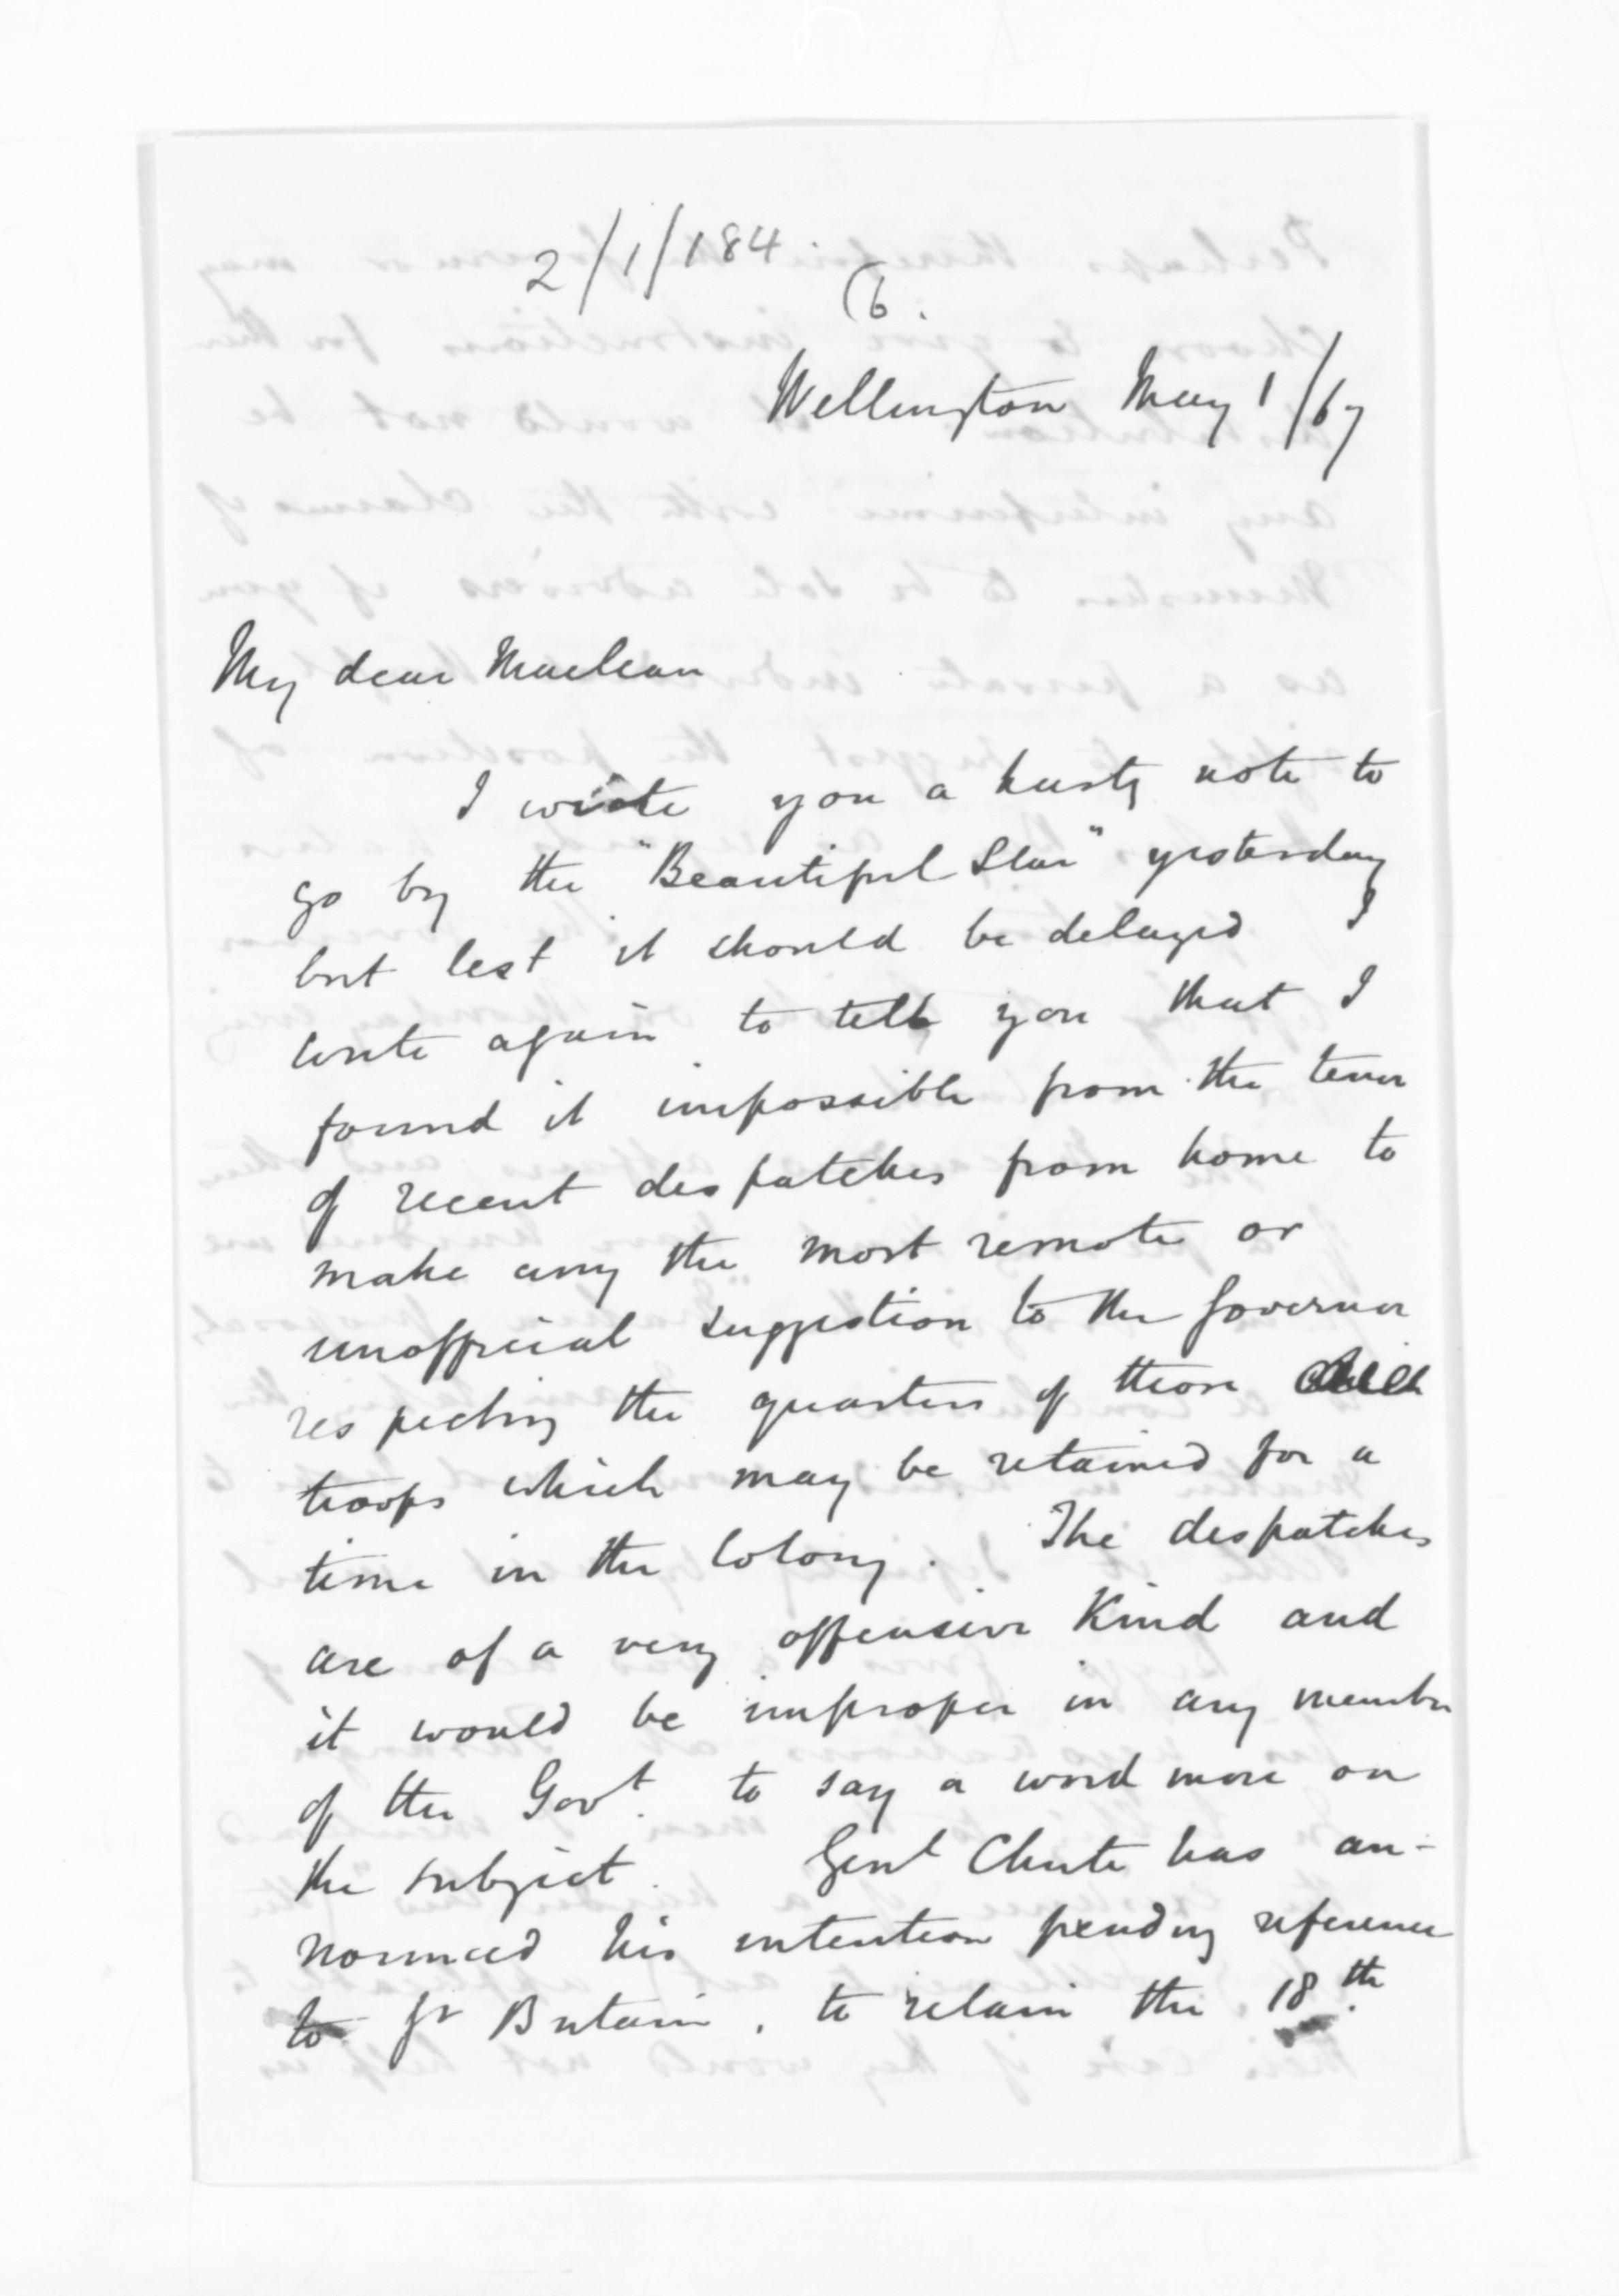 2/1/184
(6.
Wellington May 1/67
My dear Maclean
I wrote you a hasty note to
go by the "Beautiful Star" yesterday
but lest it should be delayed I
write again to tell you that I
found it impossible from the tenor
of recent despatches from home to
make any the most remote or
unofficial suggestion to the Governor
respecting the quarters of those
troops which may be retained for a
time in the Colony. The despatches
are of a very offensive kind and
it would be improper in any member
of the Govt. to say a word more on
the subject. Genl Chute has an-
nounced his intention pending reference
to Gt Britain, to retain the 18th.